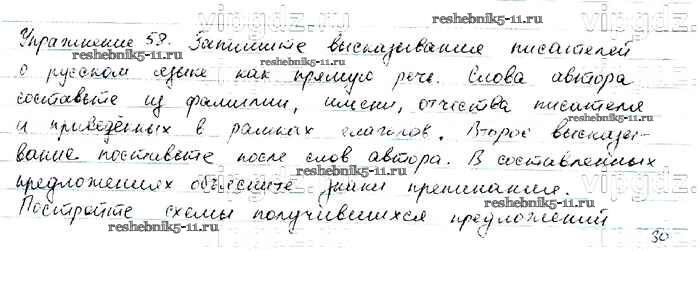 Упражнение 58. Запишите высказывания писателей
о русском языке как прямую речь. Слова автора
составьте из фамилии, имени, отчества писателя
и приведённых в рамках глаголов. Второе высказы-
вание поставьте после слов автора. В составленных
предложениях объясните знаки препинания.
Постройте схемы получившихся предложений
30
vipgdz.ru
reshebnik5-11.ru
reshebnik5-11.ru
reshebnik5-11.ru
reshebnik5-11.ru
reshebnik5-11.ru
reshebnik5-11.ru